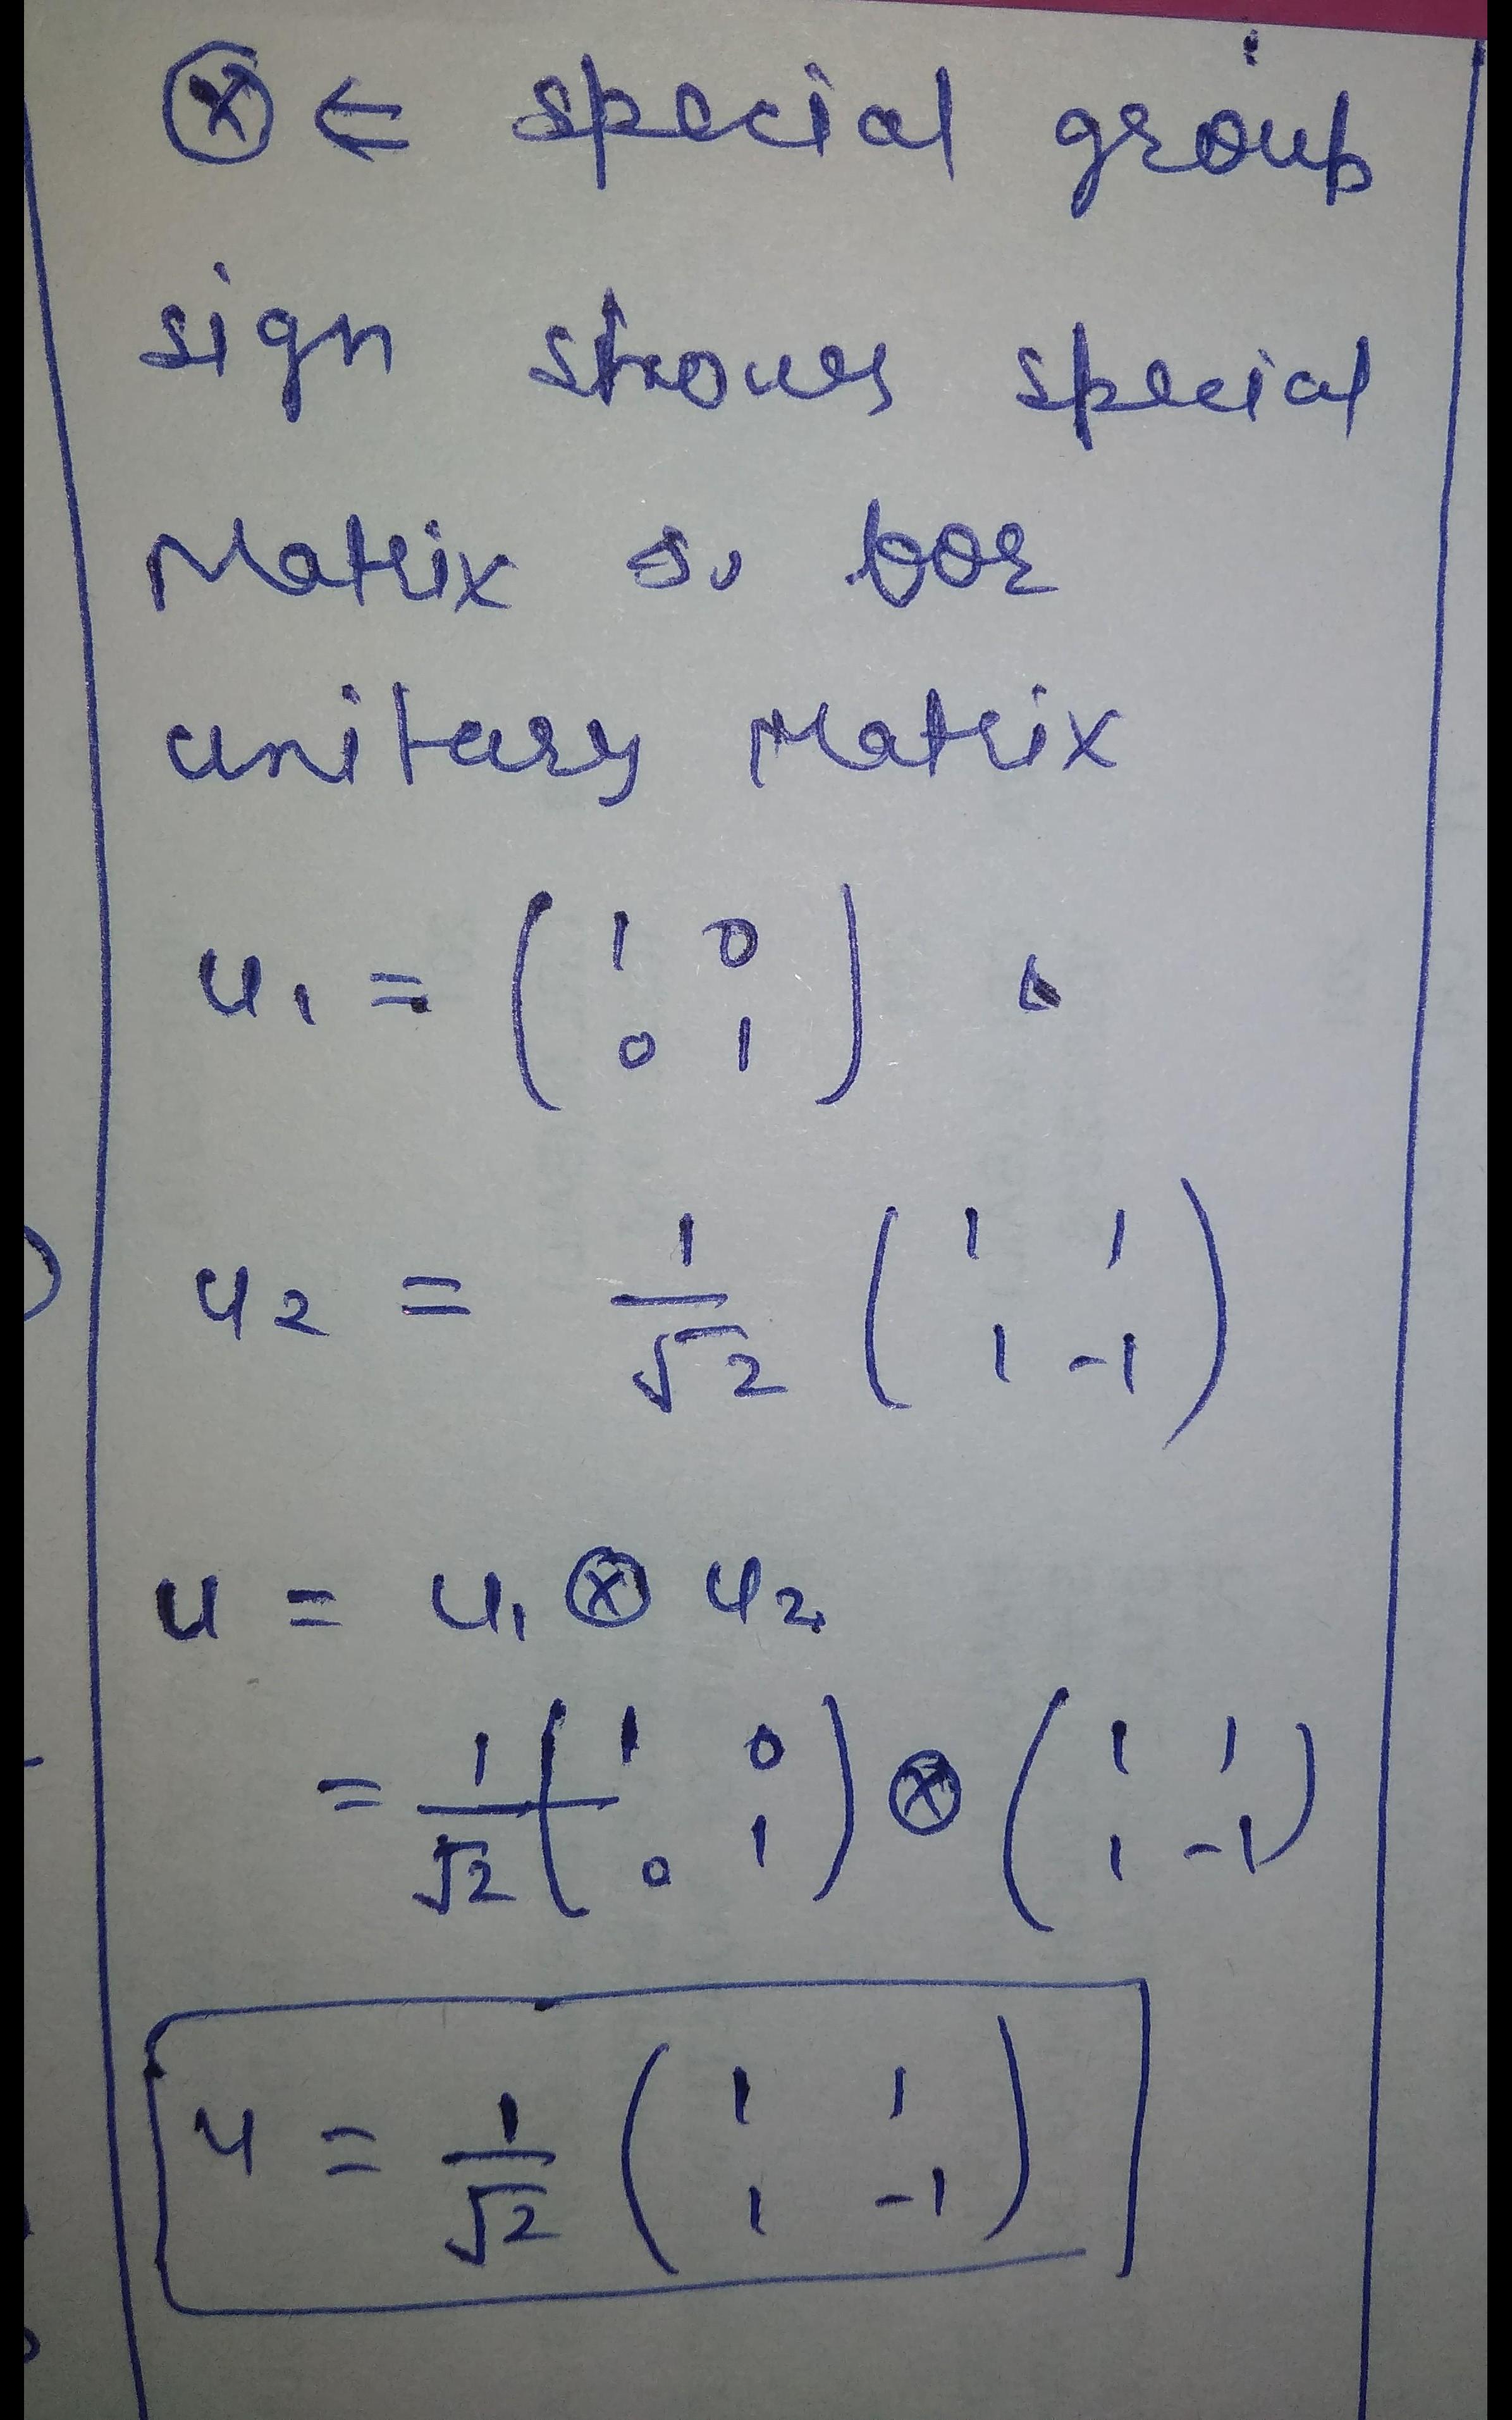 ⊗ ⇐ special group
sign shows special
Matrix so for
unitary Matrix
u₁ = ( 1 0
0 1 )
u₂ = 1/√2 ( 1 1
1 -1 )
u = u₁ ⊗ u₂
= 1/√2 ( 1 0
0 1 ) ⊗ ( 1 1
1 -1 )
u = 1/√2 ( 1 1
1 -1 )